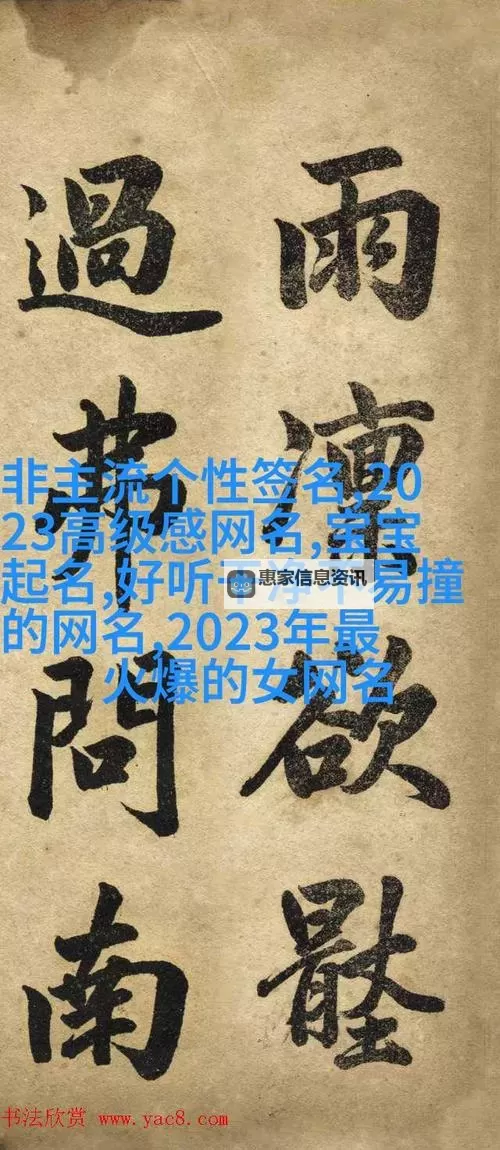 雨欲
過問南
非主流个性签名,20
23高级感网名,宝宝
起名,好听干净不易撞
的网名,2023年最
火爆的女网名
惠家信息资讯
书法欣赏 www.yac8.com